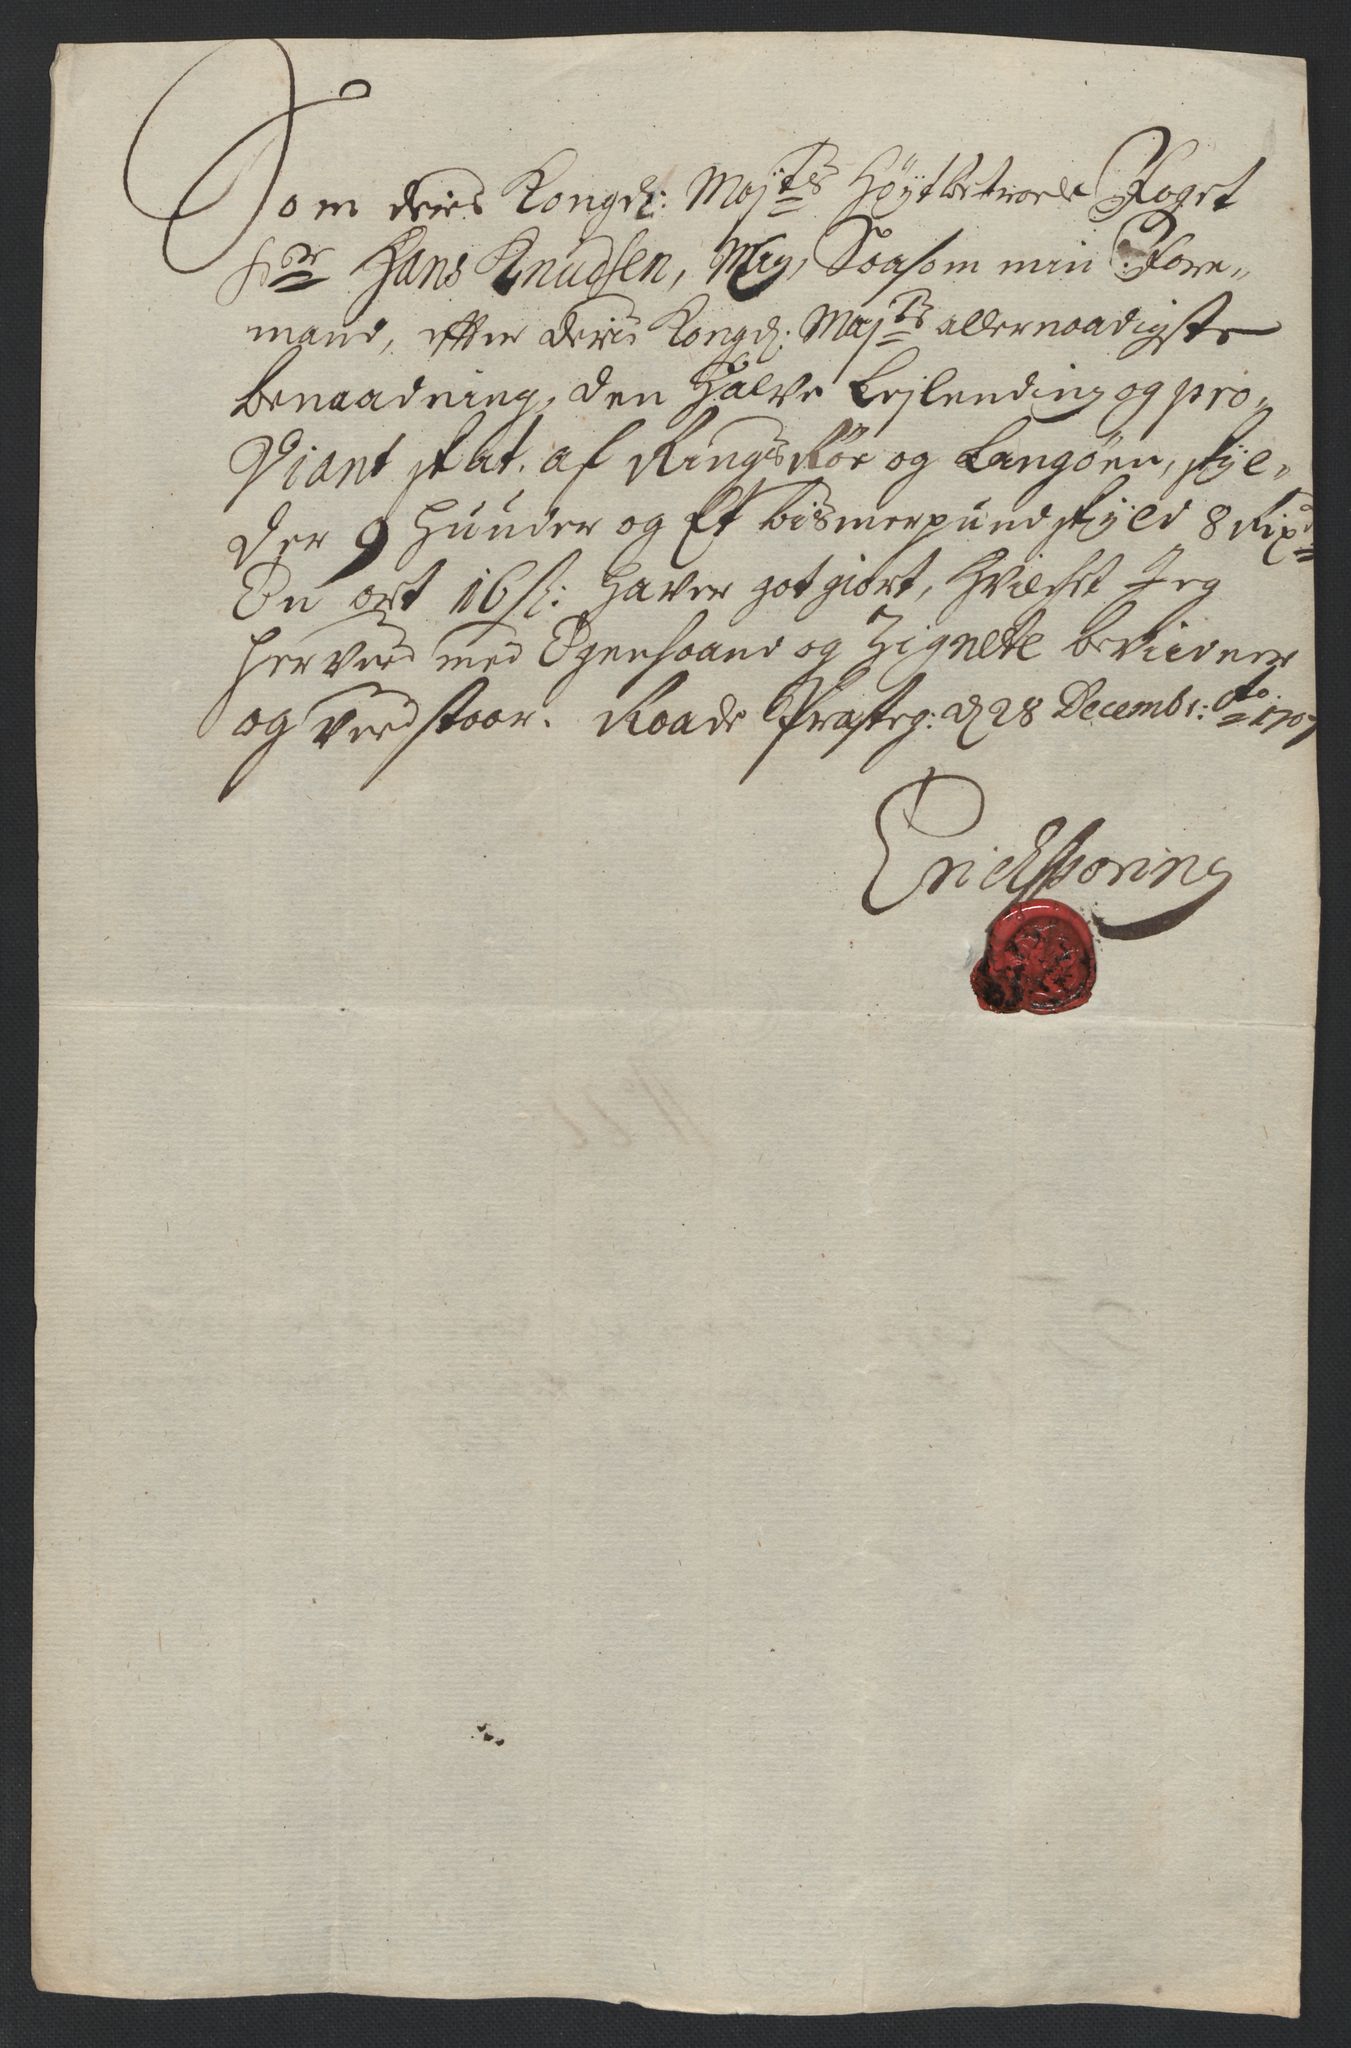 Som deris Kongel: Maj:ts Høytbetroede Foget
Sr Hans Knudsen, Mig, Saasom min Fore-
mand, efter deris Kongel: Maj:ts allernaadigste
benaadning, den Halve Lejlending og pro-
Viant skat, af RingsRør og Langøen, skyl-
der 9 Hunder og Et bismerpund skyld 8 Rixd
En ort 16 s: haver got giort, Hvilchet Jeg
herved med Egenhaand og Zignete bevidner
og vedstaar. Roade Præsteg: d 28 Decembr: Ao 1707
Erich